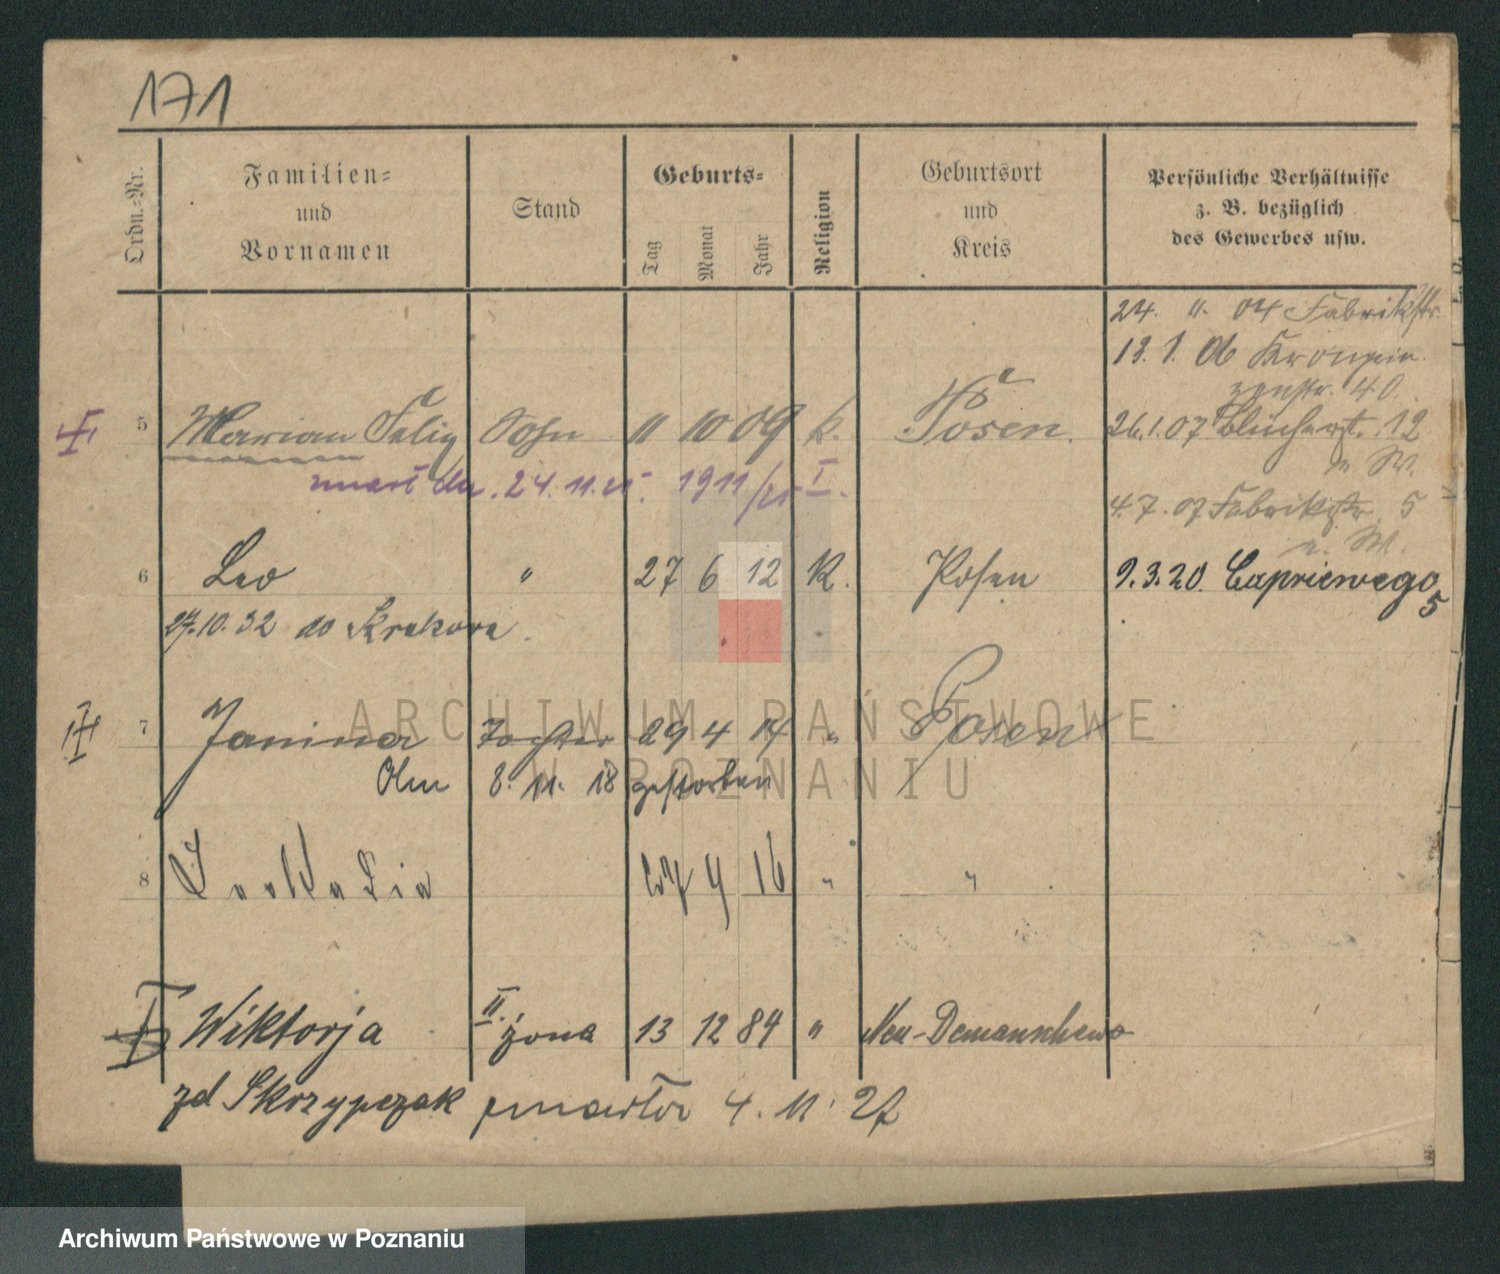 171
Ordn.-Nr.
Familien-
und
Vornamen
Stand
Geburts-
Tag
Monat
Jahr
Religion
Geburtsort
und
Kreis
Persönliche Verhältnisse
z. B. bezüglich
des Gewerbes usw.
24. 11. 04 Fabrikstr.
13. 1. 06 Kronprin
zenstr. 40.
5 Marian Felix Sohn 11 10 09 k. Posen.
26.1.07 Blücherst. 12
n W.
24. 11. 1911
4.7.07 Fabrikstr. 5
n. W.
6 Leo " 27 6 12 K. Posen 9.3.20. Capriewego
5
27.10.32 do Krakowa.
7 Janina Tochter 29 4 14 " Posen
8. 11. 18 gestorben
8 9 16 " "
Wiktorja II. żona 13 12 84 "
zd Skrzypczak zmarła 4. 11. 27
ARCHIWUM PAŃSTWOWE
W POZNANIU
Archiwum Państwowe w Poznaniu